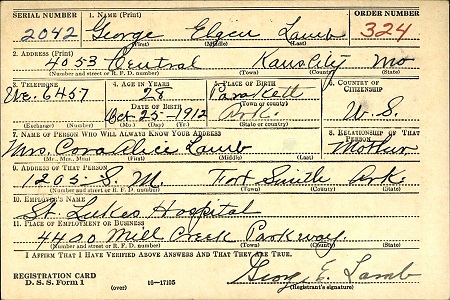 SERIAL NUMBER 1. NAME (Print) ORDER NUMBER
2042 George Elgen Lamb 324
(First) (Middle) (Last)
2. ADDRESS (Print)
4053 Central Kansas City Mo
(Number and street or R. F. D. number) (Town) (County) (State)
3. TELEPHONE 4. AGE IN YEARS 5. PLACE OF BIRTH 6. COUNTRY OF CITIZENSHIP
We. 6457 28
DATE OF BIRTH (Town or county)
Oct-25-1912 Ark. U.S.
(Exchange) (Number) (Mo.) (Day) (Yr.) (State or country)
7. NAME OF PERSON WHO WILL ALWAYS KNOW YOUR ADDRESS 8. RELATIONSHIP OF THAT PERSON
Mrs. Cora Alice Lamb Mother
(Mr., Mrs., Miss) (First) (Middle) (Last)
9. ADDRESS OF THAT PERSON
1203 - S. M. Fort Smith Ark.
(Number and street or R. F. D. number) (Town) (County) (State)
10. EMPLOYER'S NAME
St. Lukes Hospital
11. PLACE OF EMPLOYMENT OR BUSINESS
4400 Mill Creek Parkway
(Number and street or R. F. D. number) (Town) (County) (State)
I AFFIRM THAT I HAVE VERIFIED ABOVE ANSWERS AND THAT THEY ARE TRUE.
REGISTRATION CARD
D. S. S. Form 1 (over) 16—17105 George E. Lamb
(Registrant's signature)